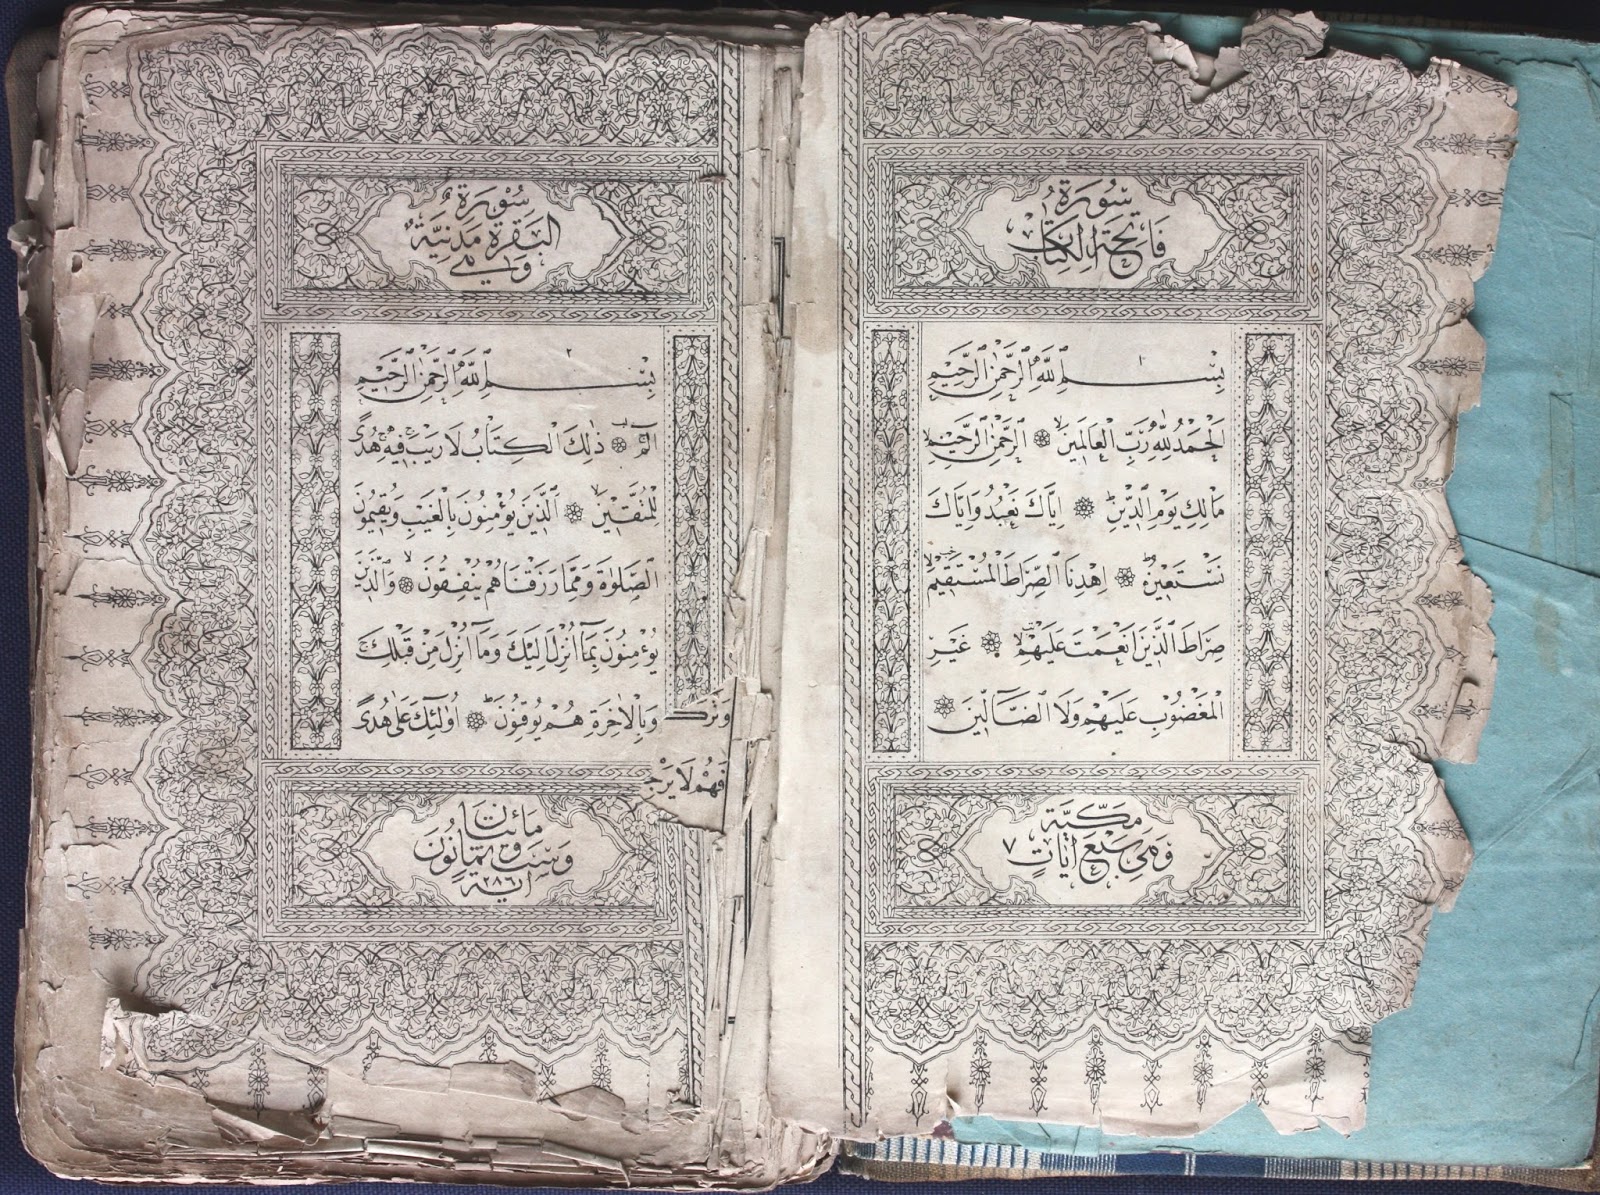 سُورَةُ
فَاتِحَةِ الْكِتَابِ
١
بِسْمِ اللّٰهِ الرَّحْمٰنِ الرَّحِيمِ
اَلْحَمْدُ لِلّٰهِ رَبِّ الْعَالَمِينَ ۙ الرَّحْمٰنِ الرَّحِيمِ ۙ
مَالِكِ يَوْمِ الدِّينِ ۜ اِيَّاكَ نَعْبُدُ وَاِيَّاكَ
نَسْتَعِينُ ۜ اِهْدِنَا الصِّرَاطَ الْمُسْتَقِيمَ ۙ
صِرَاطَ الَّذِينَ اَنْعَمْتَ عَلَيْهِمْ ۙ غَيْرِ
الْمَغْضُوبِ عَلَيْهِمْ وَلَا الضَّٓالِّينَ
مَكِّيَّةٌ
وَهِيَ سَبْعُ اٰيَاتٍ ٧
سُورَةُ
الْبَقَرَةِ مَدَنِيَّةٌ
وَهِيَ
٢
بِسْمِ اللّٰهِ الرَّحْمٰنِ الرَّحِيمِ
الٓمٓ ۚ ذٰلِكَ الْكِتَابُ لَا رَيْبَ ۚ فِيهِ ۚ هُدًى
لِلْمُتَّقِينَ ۙ اَلَّذِينَ يُؤْمِنُونَ بِالْغَيْبِ وَيُقِيمُونَ
الصَّلٰوةَ وَمِمَّا رَزَقْنَاهُمْ يُنْفِقُونَ ۙ وَالَّذِينَ
يُؤْمِنُونَ بِمَٓا اُنْزِلَ اِلَيْكَ وَمَٓا اُنْزِلَ مِنْ قَبْلِكَ ۚ
وَبِالْاٰخِرَةِ هُمْ يُوقِنُونَ ۜ اُولٰٓئِكَ عَلٰى هُدًى
مِائَتَانِ
وَسِتٌّ وَثَمَانُونَ
اٰيَةً ٢٨٦
وَتَرَكَ
فَهُمْ لَا